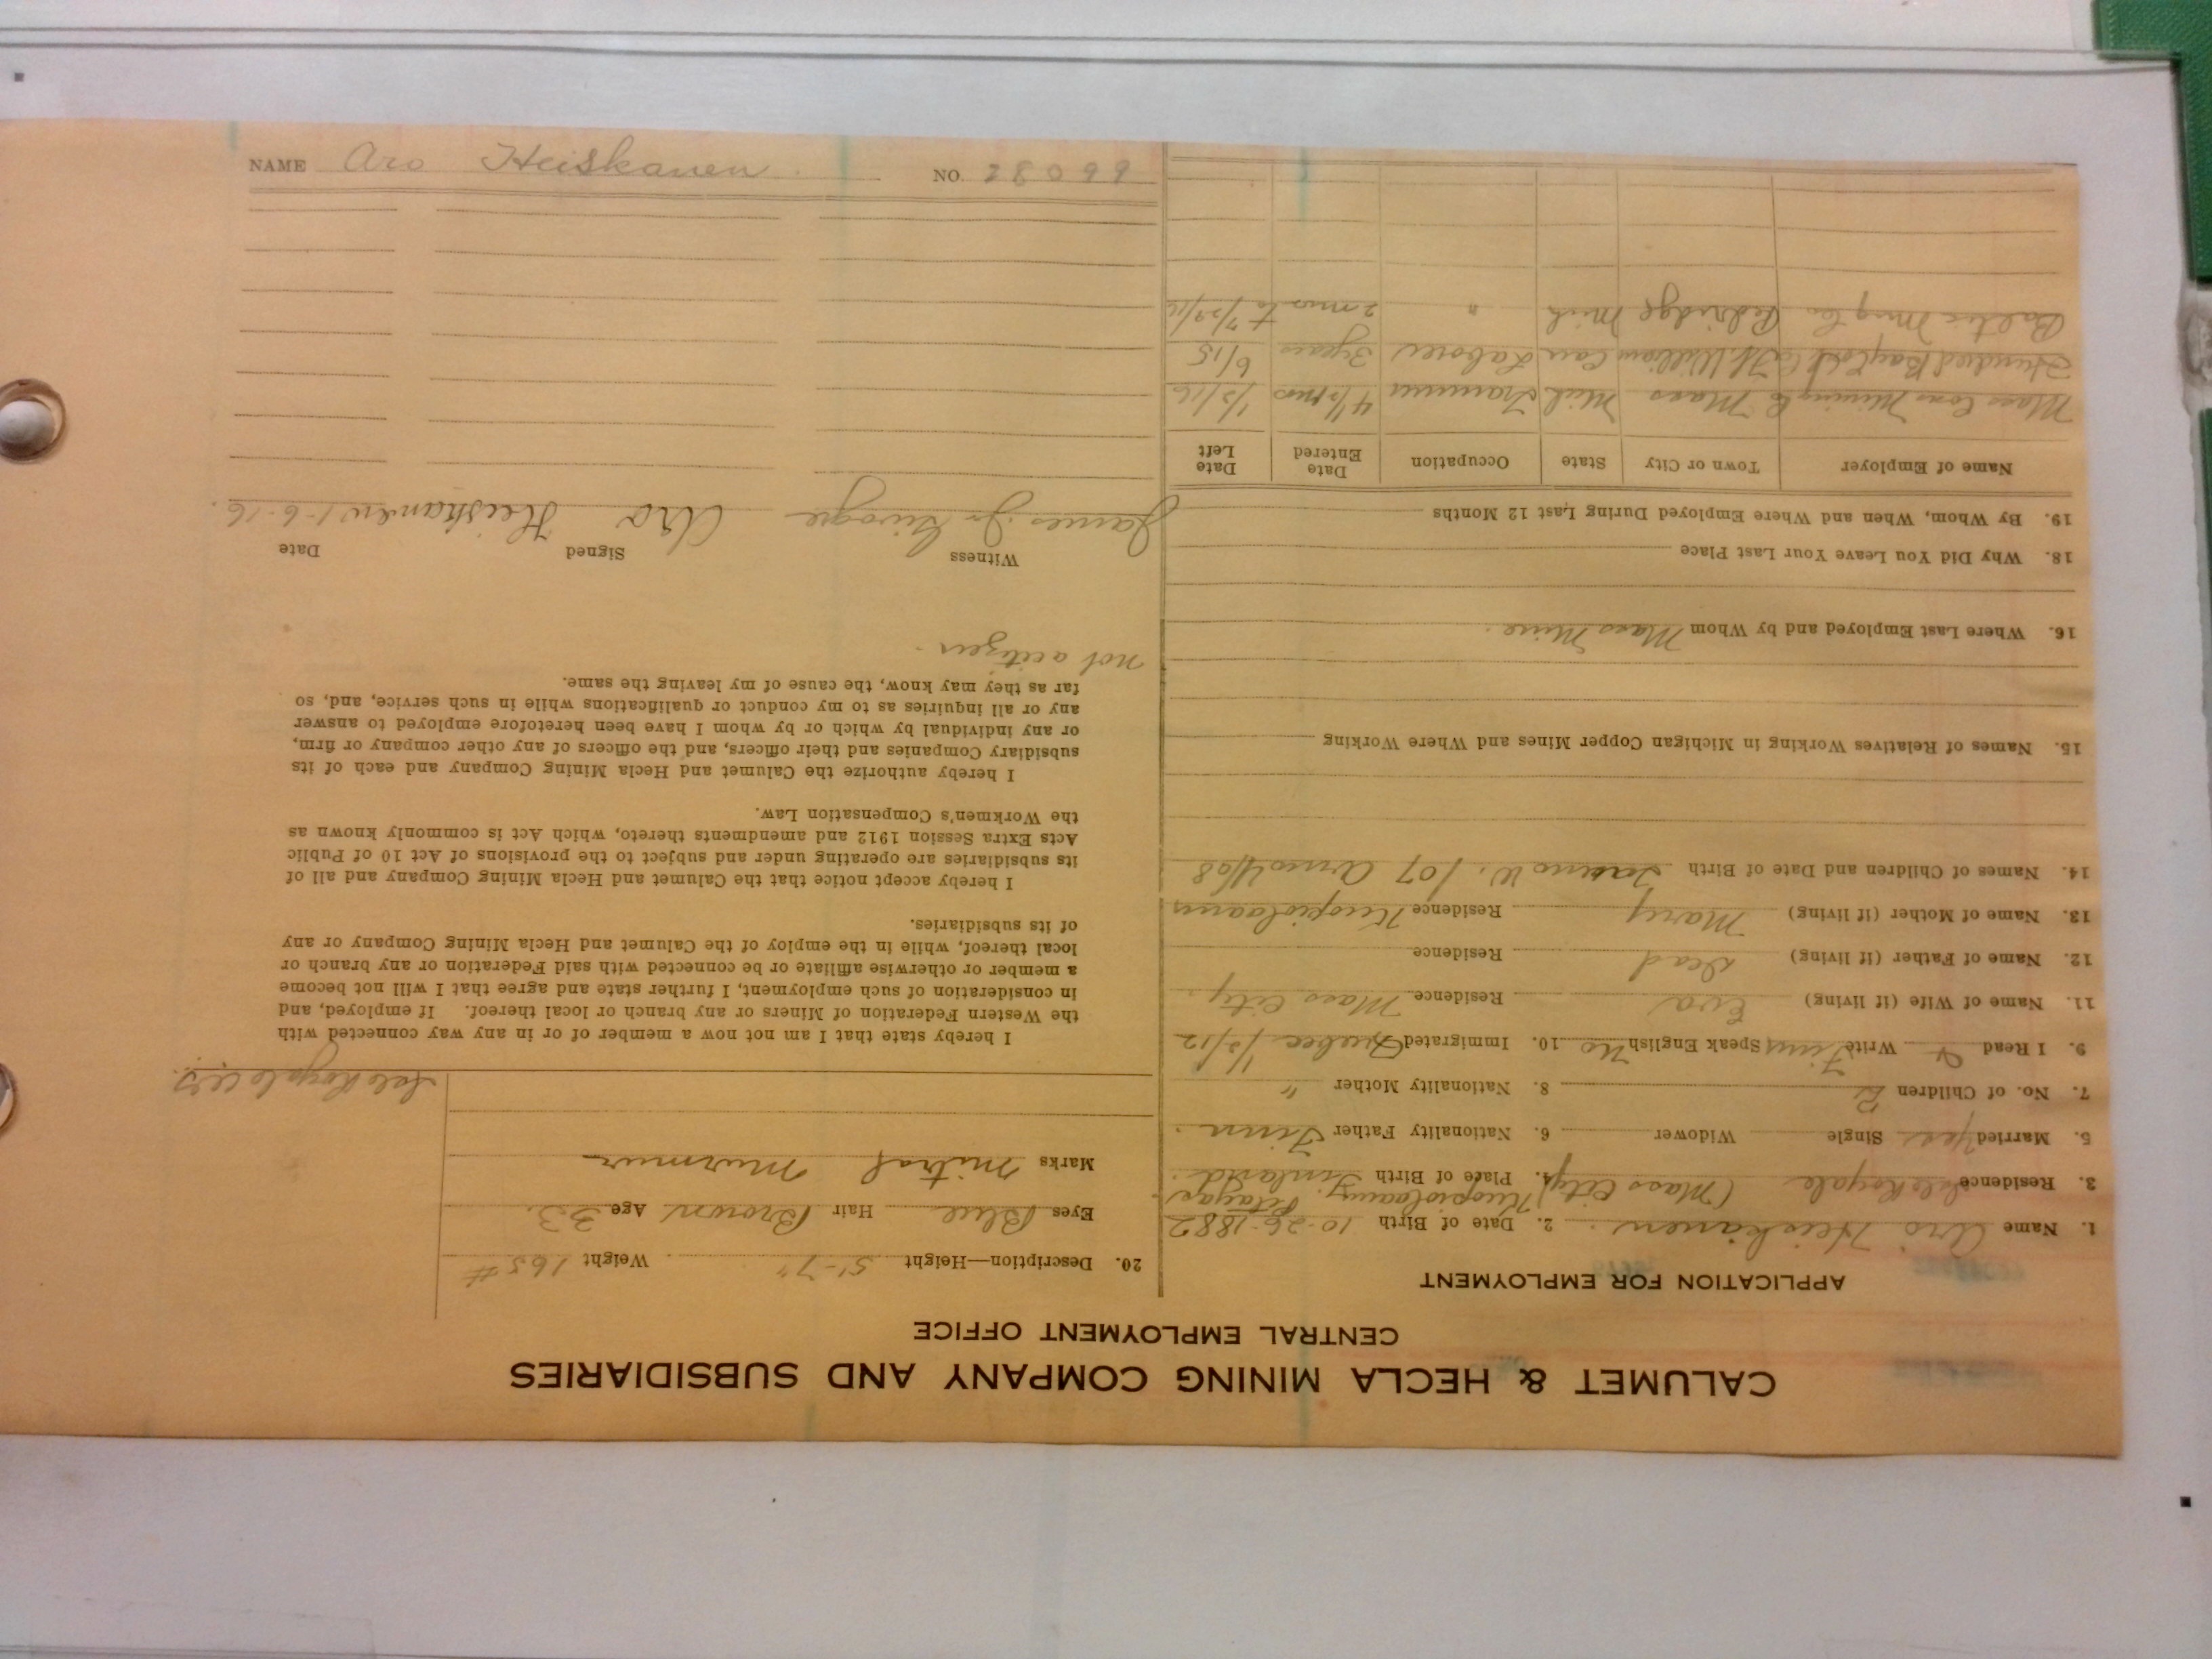 CALUMET & HECLA MINING COMPANY AND SUBSIDIARIES
CENTRAL EMPLOYMENT OFFICE
APPLICATION FOR EMPLOYMENT
1. Name Aro Heiskanen. 2. Date of Birth 10-26-1882
3. Residence Isle Royale (Mass City) 4. Place of Birth Kuopiolaani, Finland.
5. Married Yes Single Widower 6. Nationality Father Finn.
7. No. of Children 2 8. Nationality Mother "
9. I Read & Write Finn Speak English No 10. Immigrated Quebec 1/3/12
11. Name of Wife (if living) Eva Residence Mass City.
12. Name of Father (if living) Dead Residence
13. Name of Mother (if living) Mary Residence Kuopiolaani
14. Names of Children and Date of Birth W. /07 Arno 4/08
15. Names of Relatives Working in Michigan Copper Mines and Where Working
16. Where Last Employed and by Whom Mass Mine.
18. Why Did You Leave Your Last Place
19. By Whom, When and Where Employed During Last 12 Months
Name of Employer Town or City State Occupation Date Entered Date Left
Mass Cons Mining Co Mass Mich Trammer 4½ mos 1/3/16
Ft. William Can Laborer 3 years 6/15
Baltic Mng Co. Redridge Mich " 2 mos to
20. Description—Height 5'-7" Weight 165#
Eyes Blue Hair Brown Age 33.
Marks Mitral Murmur
Isle Royale
I hereby state that I am not now a member of or in any way connected with
the Western Federation of Miners or any branch or local thereof. If employed, and
in consideration of such employment, I further state and agree that I will not become
a member or otherwise affiliate or be connected with said Federation or any branch or
local thereof, while in the employ of the Calumet and Hecla Mining Company or any
of its subsidiaries.
I hereby accept notice that the Calumet and Hecla Mining Company and all of
its subsidiaries are operating under and subject to the provisions of Act 10 of Public
Acts Extra Session 1912 and amendments thereto, which Act is commonly known as
the Workmen's Compensation Law.
I hereby authorize the Calumet and Hecla Mining Company and each of its
subsidiary Companies and their officers, and the officers of any other company or firm,
or any individual by which or by whom I have been heretofore employed to answer
any or all inquiries as to my conduct or qualifications while in such service, and, so
far as they may know, the cause of my leaving the same.
not a citizen.
Witness Signed Date
James Aro Heiskanen 1-6-16.
NAME Aro Heiskanen. NO. 28099